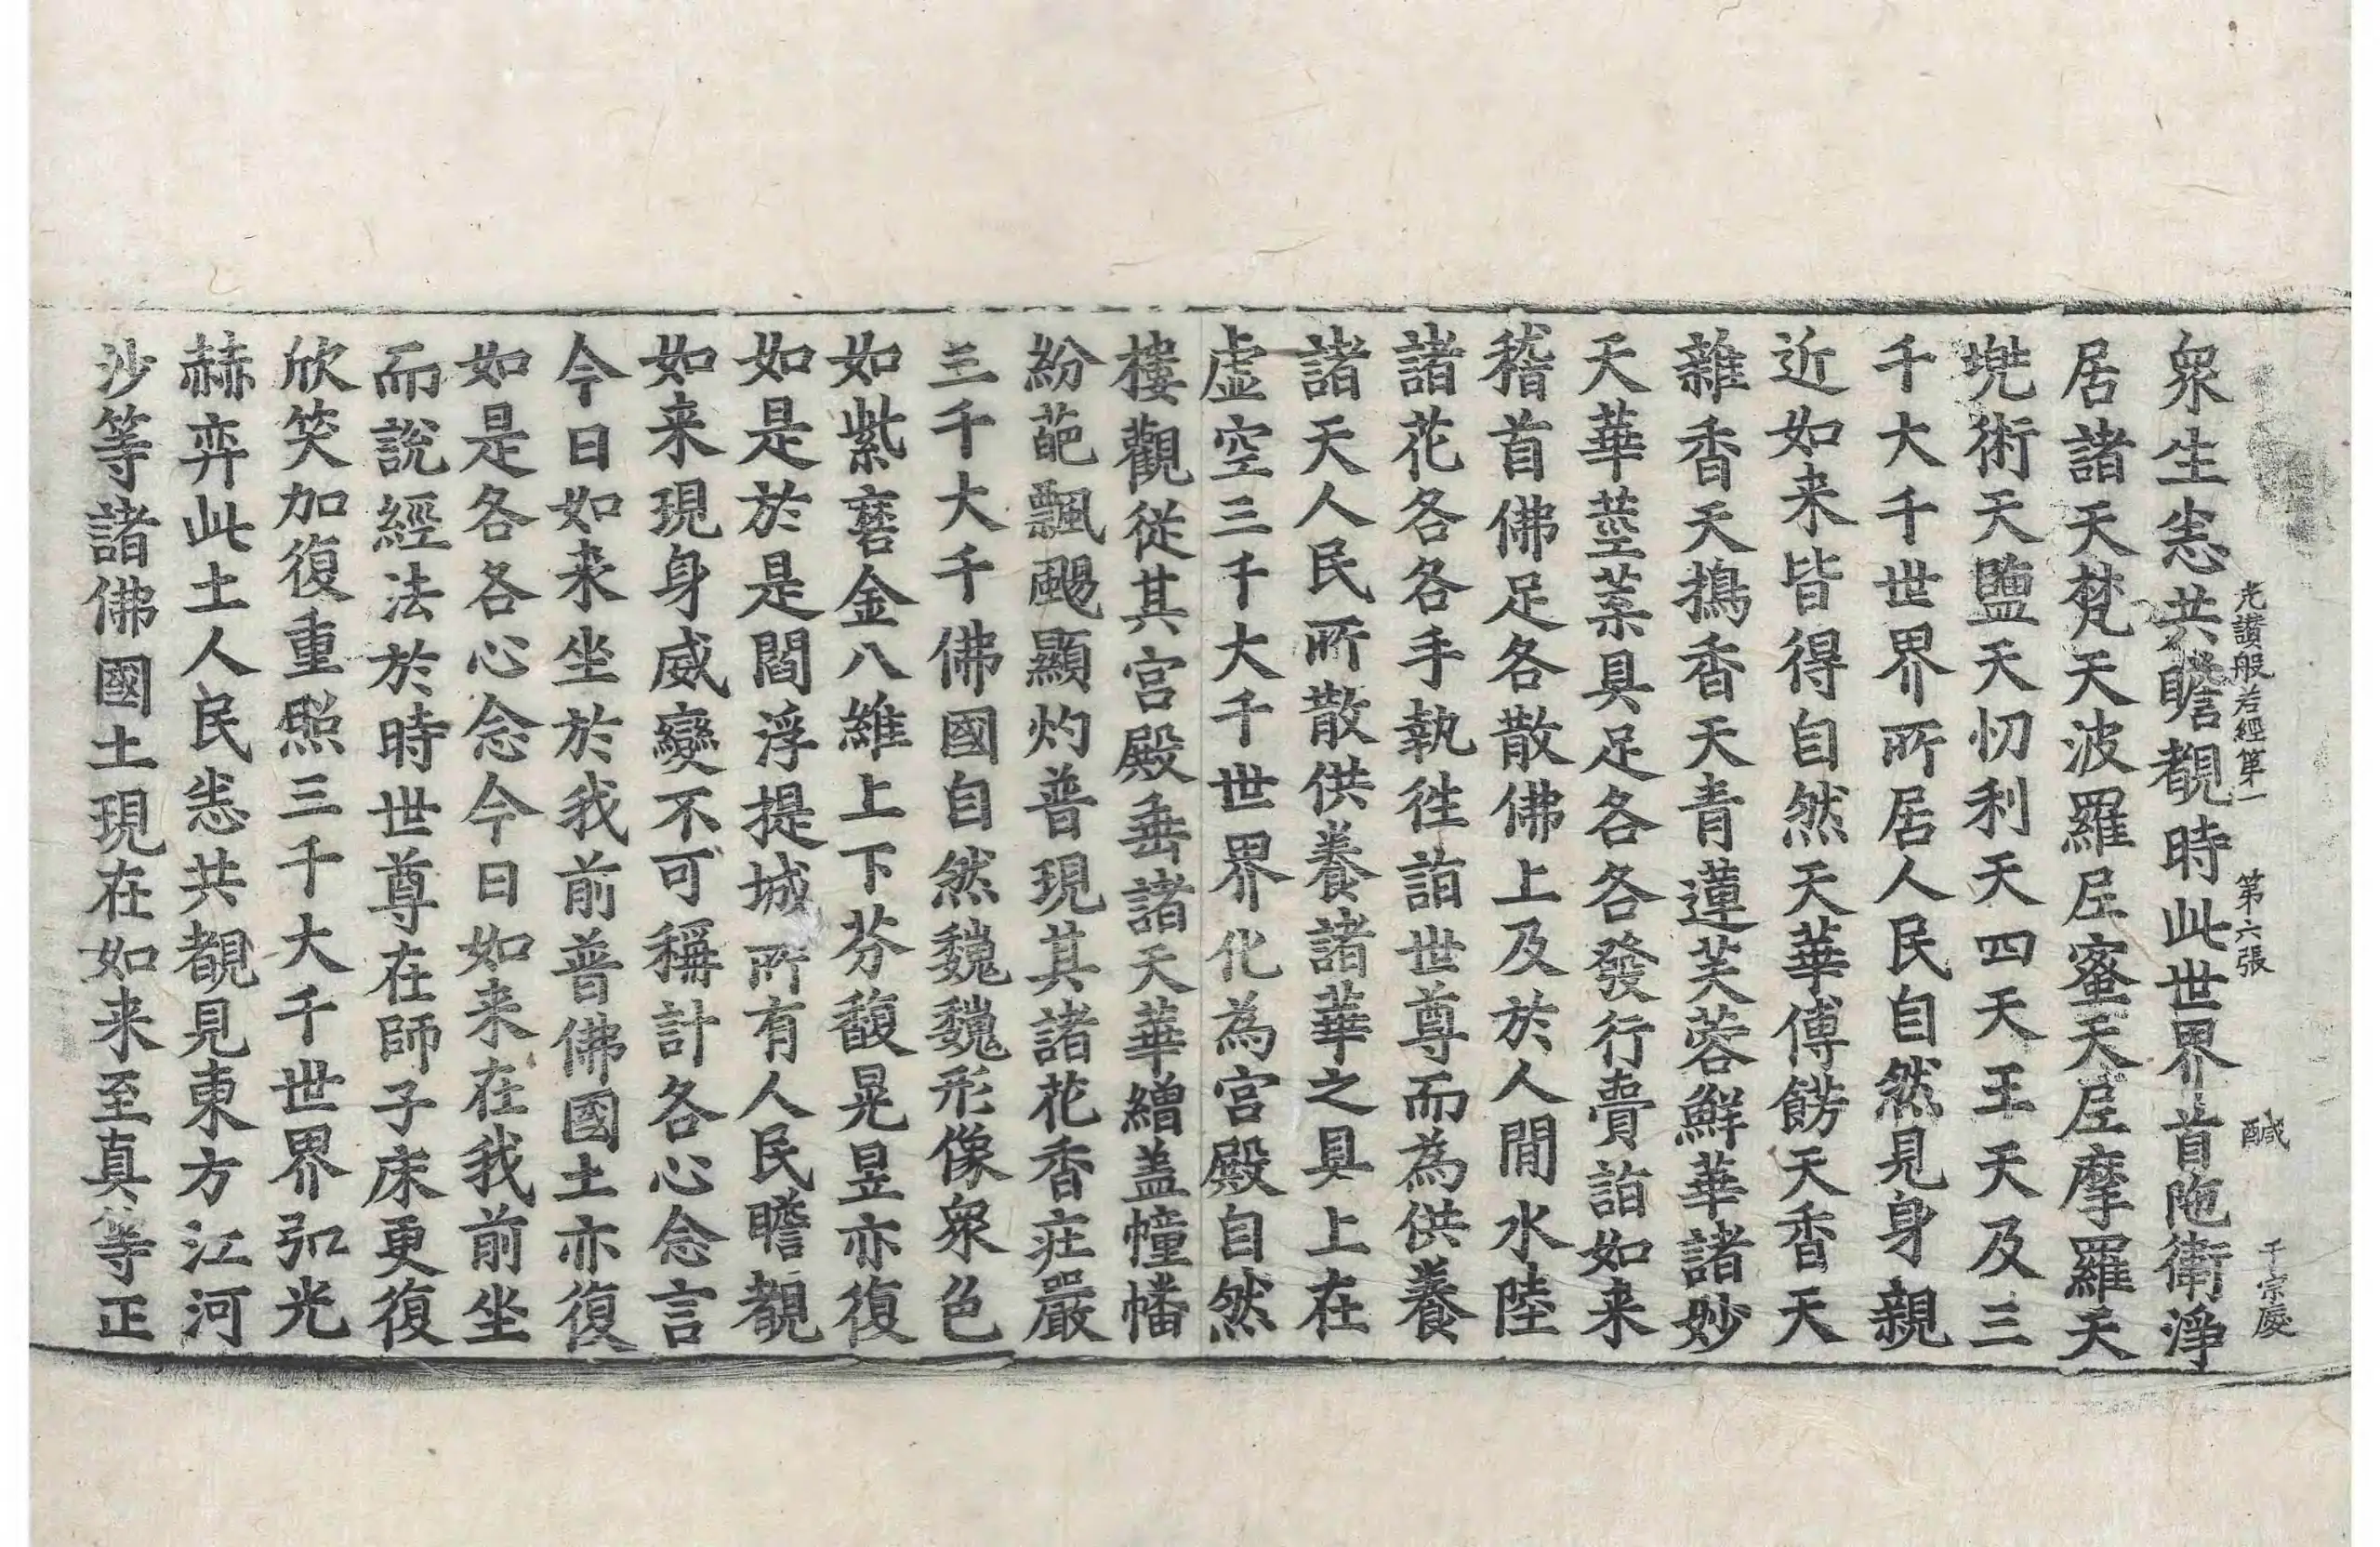 光讃般若經第一　第六張　醎　千宗慶
衆生恙共瞻覩時此世界首陁衛淨
居諸天梵天波羅𡰱蜜天𡰱摩羅天
兠術天鹽天忉利天四天王天及三
千大千世界所居人民自然見身親
近如来皆得自然天華傅餝天香天
雜香天搗香天青蓮芙蓉鮮華諸妙
天華莖葉具足各各發行賷詣如来
稽首佛足各散佛上及於人間水陸
諸花各各手執徃詣世尊而為供養
諸天人民所散供養諸華之具上在
虛空三千大千世界化為宮殿自然
樓觀從其宮殿垂諸天華繒盖幢幡
紛葩飄颺顯灼普現其諸花香庄嚴
三千大千佛國自然魏魏形像衆色
如紫磨金八維上下芬馥晃昱亦復
如是於是閻浮提城所有人民瞻覩
如来現身威變不可稱計各心念言
今日如来坐於我前普佛國土亦復
如是各各心念今日如来在我前坐
而說經法於時世尊在師子床更復
欣笑加復重照三千大千世界弘光
赫弈此土人民恙共覩見東方江河
沙等諸佛國土現在如来至真等正